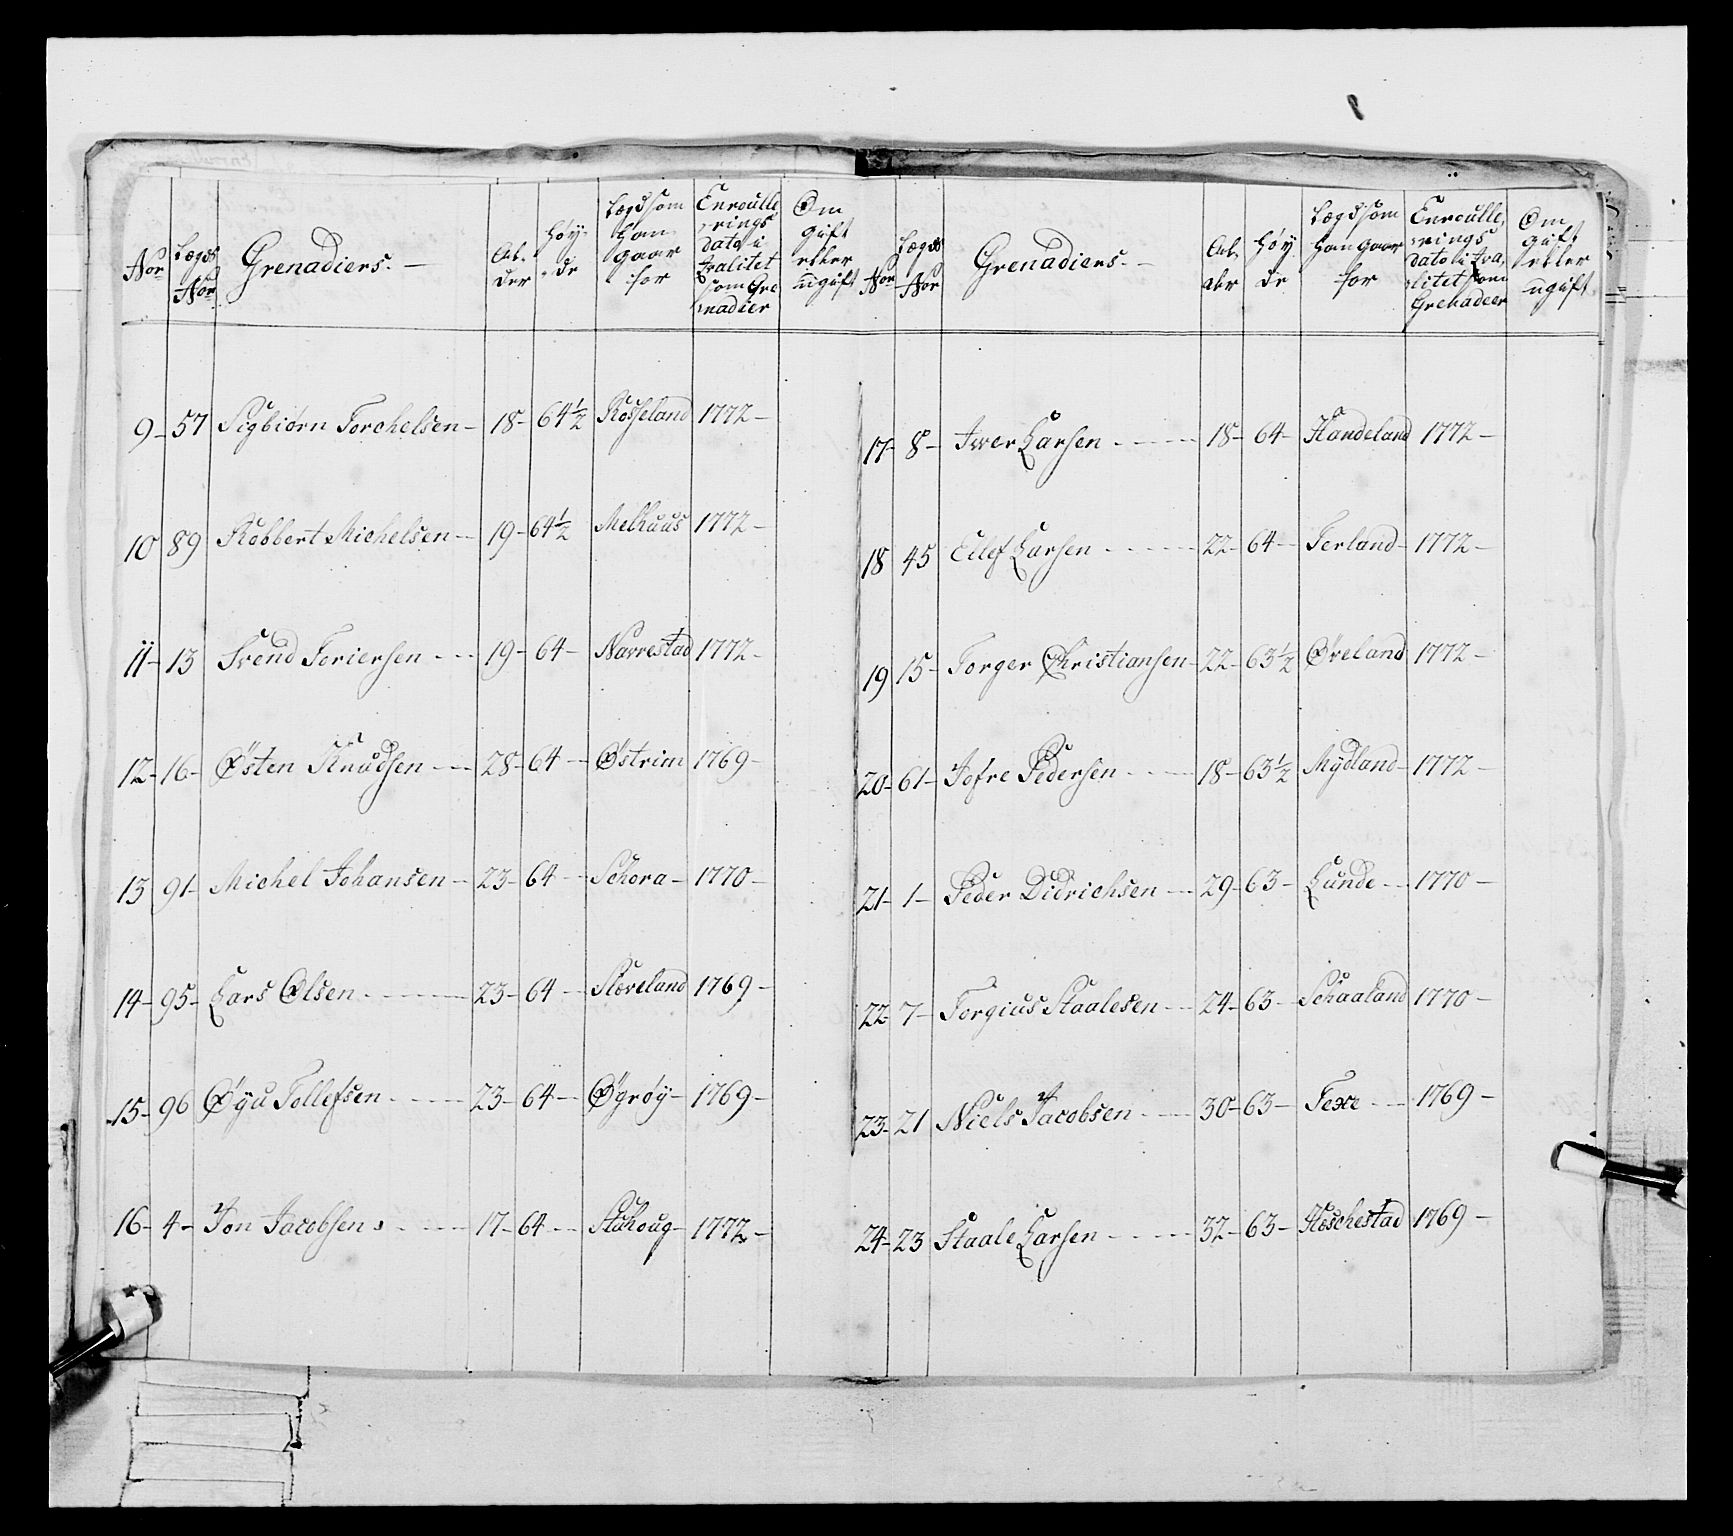 Nor
Lægds Nor
Grenadiers. —
Al- der
Høy- de
Lægd som han gaar for
Enroulle- rings dato i qvalitet som Gre nadier
Om gift eller ugift
9 - 57 Sigbiørn Torchelsen - 18 - 64½ Rosseland 1772 -
10 89 Robbert Michelsen - 19 - 64½ Melhuus 1772 -
11 - 13 Svend Feriersen - - - 19 - 64 - Navrestad 1772 -
12 - 16 - Østen Knudsen - - 28 - 64 - Østrim 1769 -
13 91 - Michel Johansen - 23 - 64 - Schora - 1770 -
14 - 95 - Lars Olsen - - - - 23 - 64 - Sleveland 1769 -
15 - 96 Øyu Tollefsen - - - - 23 - 64 - Øgrøy - 1769 -
16 - 4 - Jon Jacobsen - - - - 17 - 64 - - Stuhoug - 1772 -
Nor
Lægds Nor
Grenadiers. —
Al- der
Høy de
Lægd som han gaar for
Enroulle- rings dato i qva- litet som Grenadeer
Om gift eller ugift
17 - 8 - Iwer Larsen - - - - 18 - 64 - Handeland 1772 -
18 45 Eilef Larsen - - - - 22 - 64 - Ferland - 1772 -
19 15 - Torger Christiansen - 22 - 63½ Øveland 1772 -
20 - 61 - Jofre Pedersen - - - 18 - 63½ Mydland - 1772 -
21 - 1 - Peder Didrichsen - - 29 - 63 - Lunde - - 1770 -
22 - 7 - Torgius Staalesen - - 24 - 63 - Schaaland 1770 -
23 - 21 Niels Jacobsen - - - 30 - 63 - Texe - - 1769 -
24 - 23 Staale Larsen - - - - 32 - 63 - Heschestad 1769 -